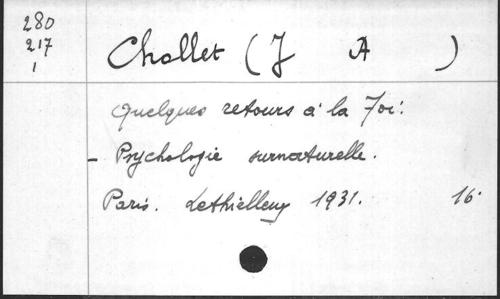 280
217
1
Chollet (J A )
Quelques retours à la Foi:
- Psychologie surnaturelle.
Paris. Lethielleux 1931. 16°